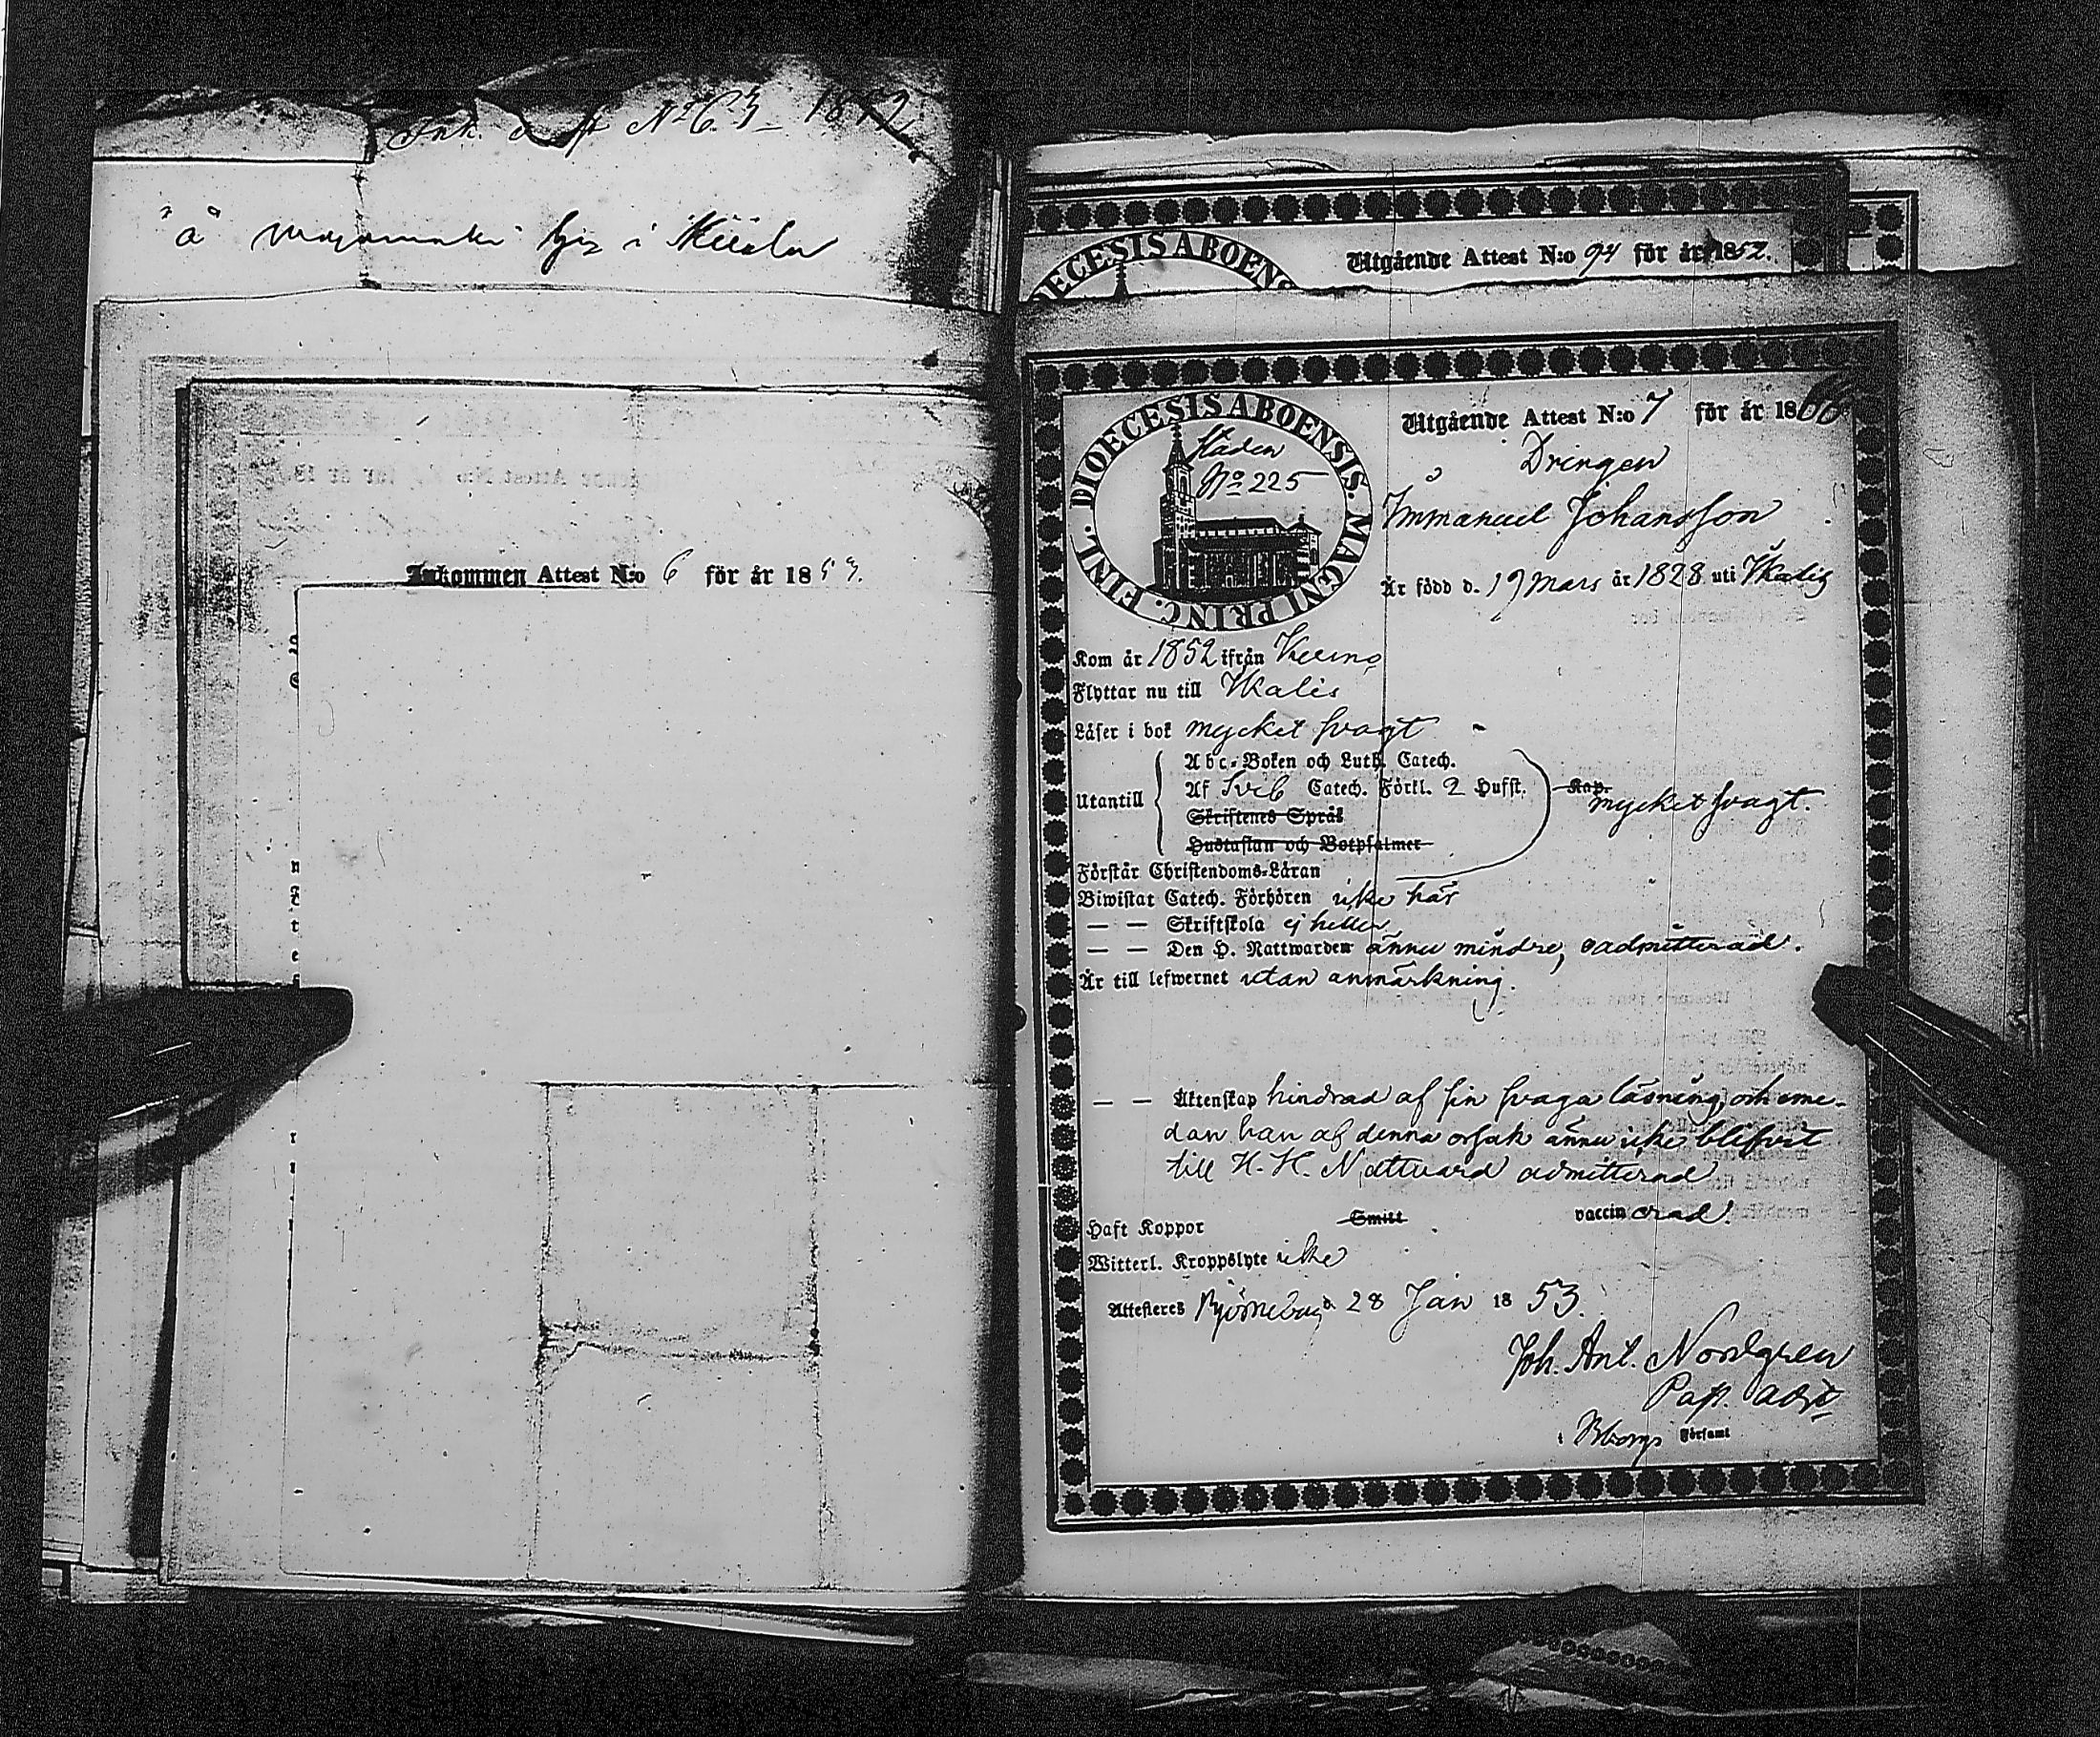 Ink. att. No 6. 3 1852
"å" i
Inkommen Attest N:o 6 för år 1853.
DIOECESIS ABOENS
Utgående Attest N:o 94 för år 1852.
DIOECESIS ABOENSIS. MAGNI PRINC. FINL.
Staden
No 225
Utgående Attest N:o 7 för år 18
Drengen
Immanuel Johansson
Är född d. 19 Mars år 1828 uti Ikalis
Kom år 1852 ifrån Keuru
Flyttar nu till Ikalis
Läser i bok mycket svagt
Utantill
Abc-Boken och Luth. Catech.
Af Sveb Catech. Förkl. 2 Hufst.
Kap.
mycket svagt.
Skriftenes Språk
Hustaflan och Botpsalmer
Förstår Christendoms-Läran
Biwistat Catech. Förhören icke här
— — Skriftskola ej heller
— — Den H. Nattwarden ännu mindre, oadmitterad.
Är till lefwernet utan anmärkning.
— — Äktenskap hindrad af sin svaga läsning, och eme-
dan han af denna orsak ännu icke blifvit
till H. H. Nattvard admitterad
Haft Koppor Smitt vaccinerad.
Witterl. Kroppslyte icke
Attesteres Björneborg d. 28 Jan 1853.
Joh. Ant. Nordgren
Past. adj.
i Bborgs Församl